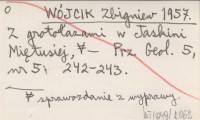 WÓJCIK Zbigniew 1957.
Z grotołazami w Jaskini
Miętusiej, ※ — Prz. Geol. 5,
nr 5: 242-243.
※ sprawozdanie z wyprawy